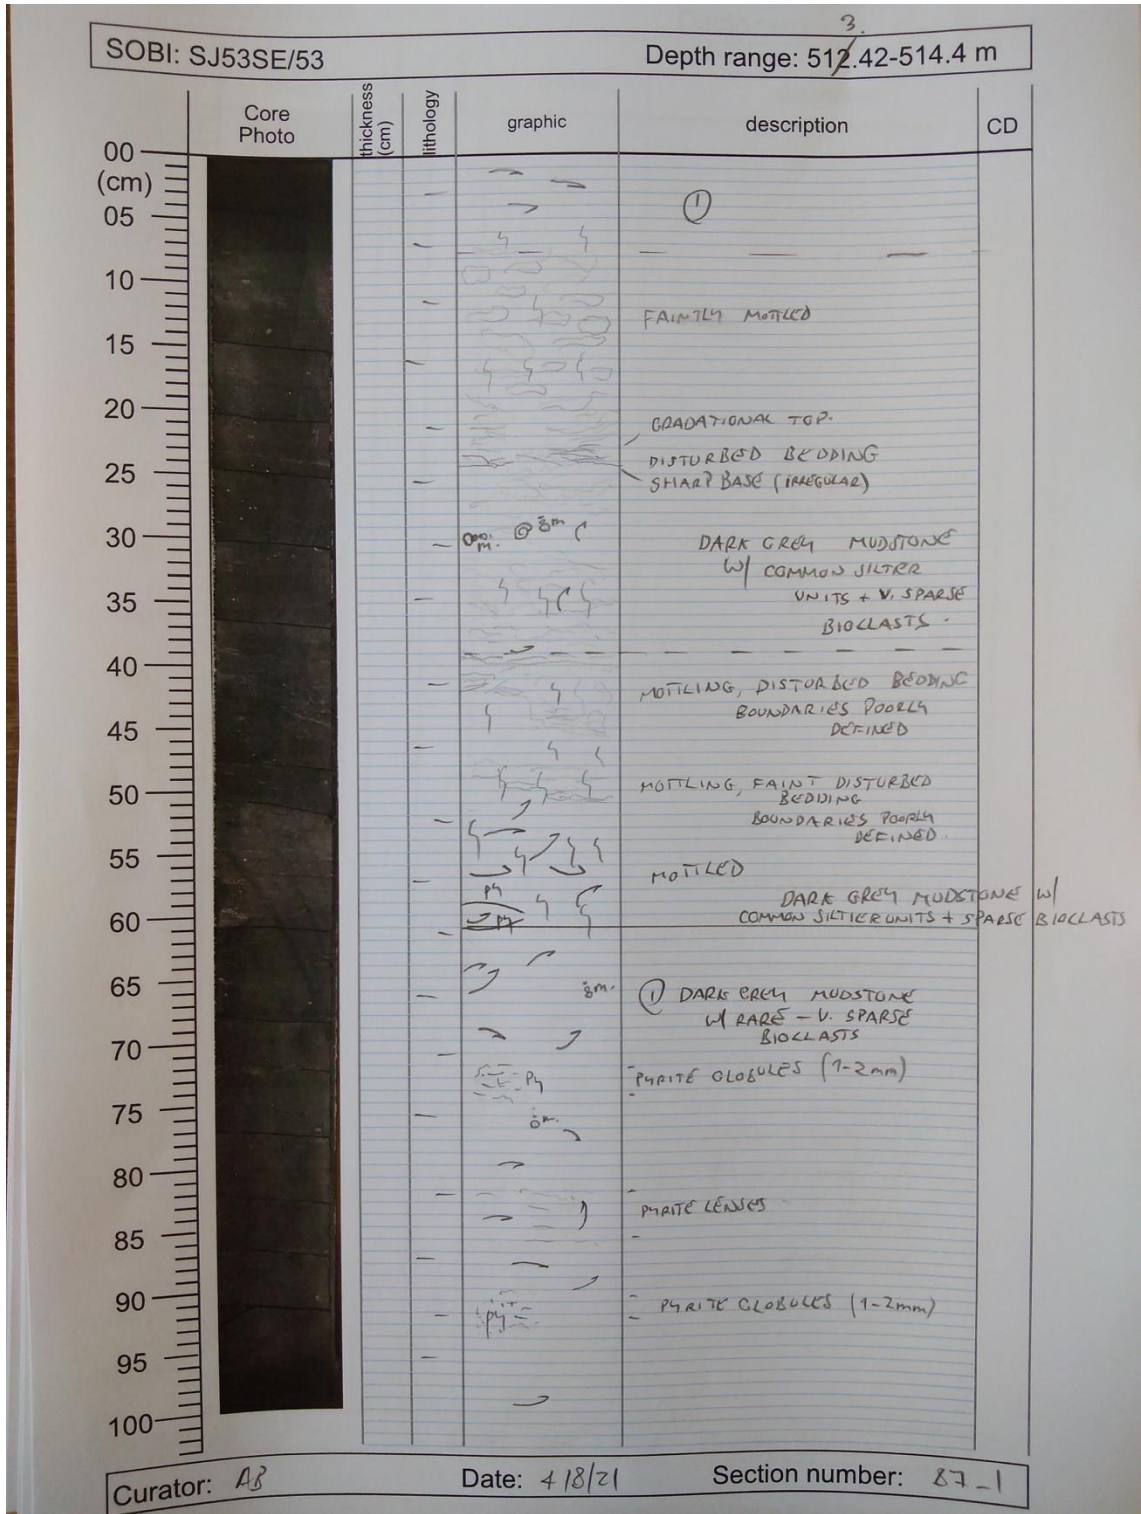 3.
SOBI: SJ53SE/53 Depth range: 512.42-514.4 m
Core Photo thickness (cm) lithology graphic description CD
00
(cm)
05
1
10
FAINTLY MOTTLED
15
20
GRADATIONAL TOP.
DISTURBED BEDDING
25
SHARP BASE (IRREGULAR)
m
30
m.
DARK GREY MUDSTONE
W/ COMMON SILTIER
35
UNITS + V. SPARSE
BIOCLASTS.
40
MOTTLING, DISTURBED BEDDING
BOUNDARIES POORLY
45
DEFINED
MOTTLING, FAINT DISTURBED
50
BEDDING
BOUNDARIES POORLY
DEFINED.
55
MOTTLED
py
DARK GREY MUDSTONE W/
60
py
COMMON SILTIER UNITS + SPARSE BIOCLASTS
65
m.
1 DARK GREY MUDSTONE
W/ RARE - V. SPARSE
BIOCLASTS
70
py
PYRITE GLOBULES (1-2mm)
75
m.
80
PYRITE LENSES
85
90
py
PYRITE GLOBULES (1-2mm)
95
100
Curator: AB Date: 4/8/21 Section number: 87_1